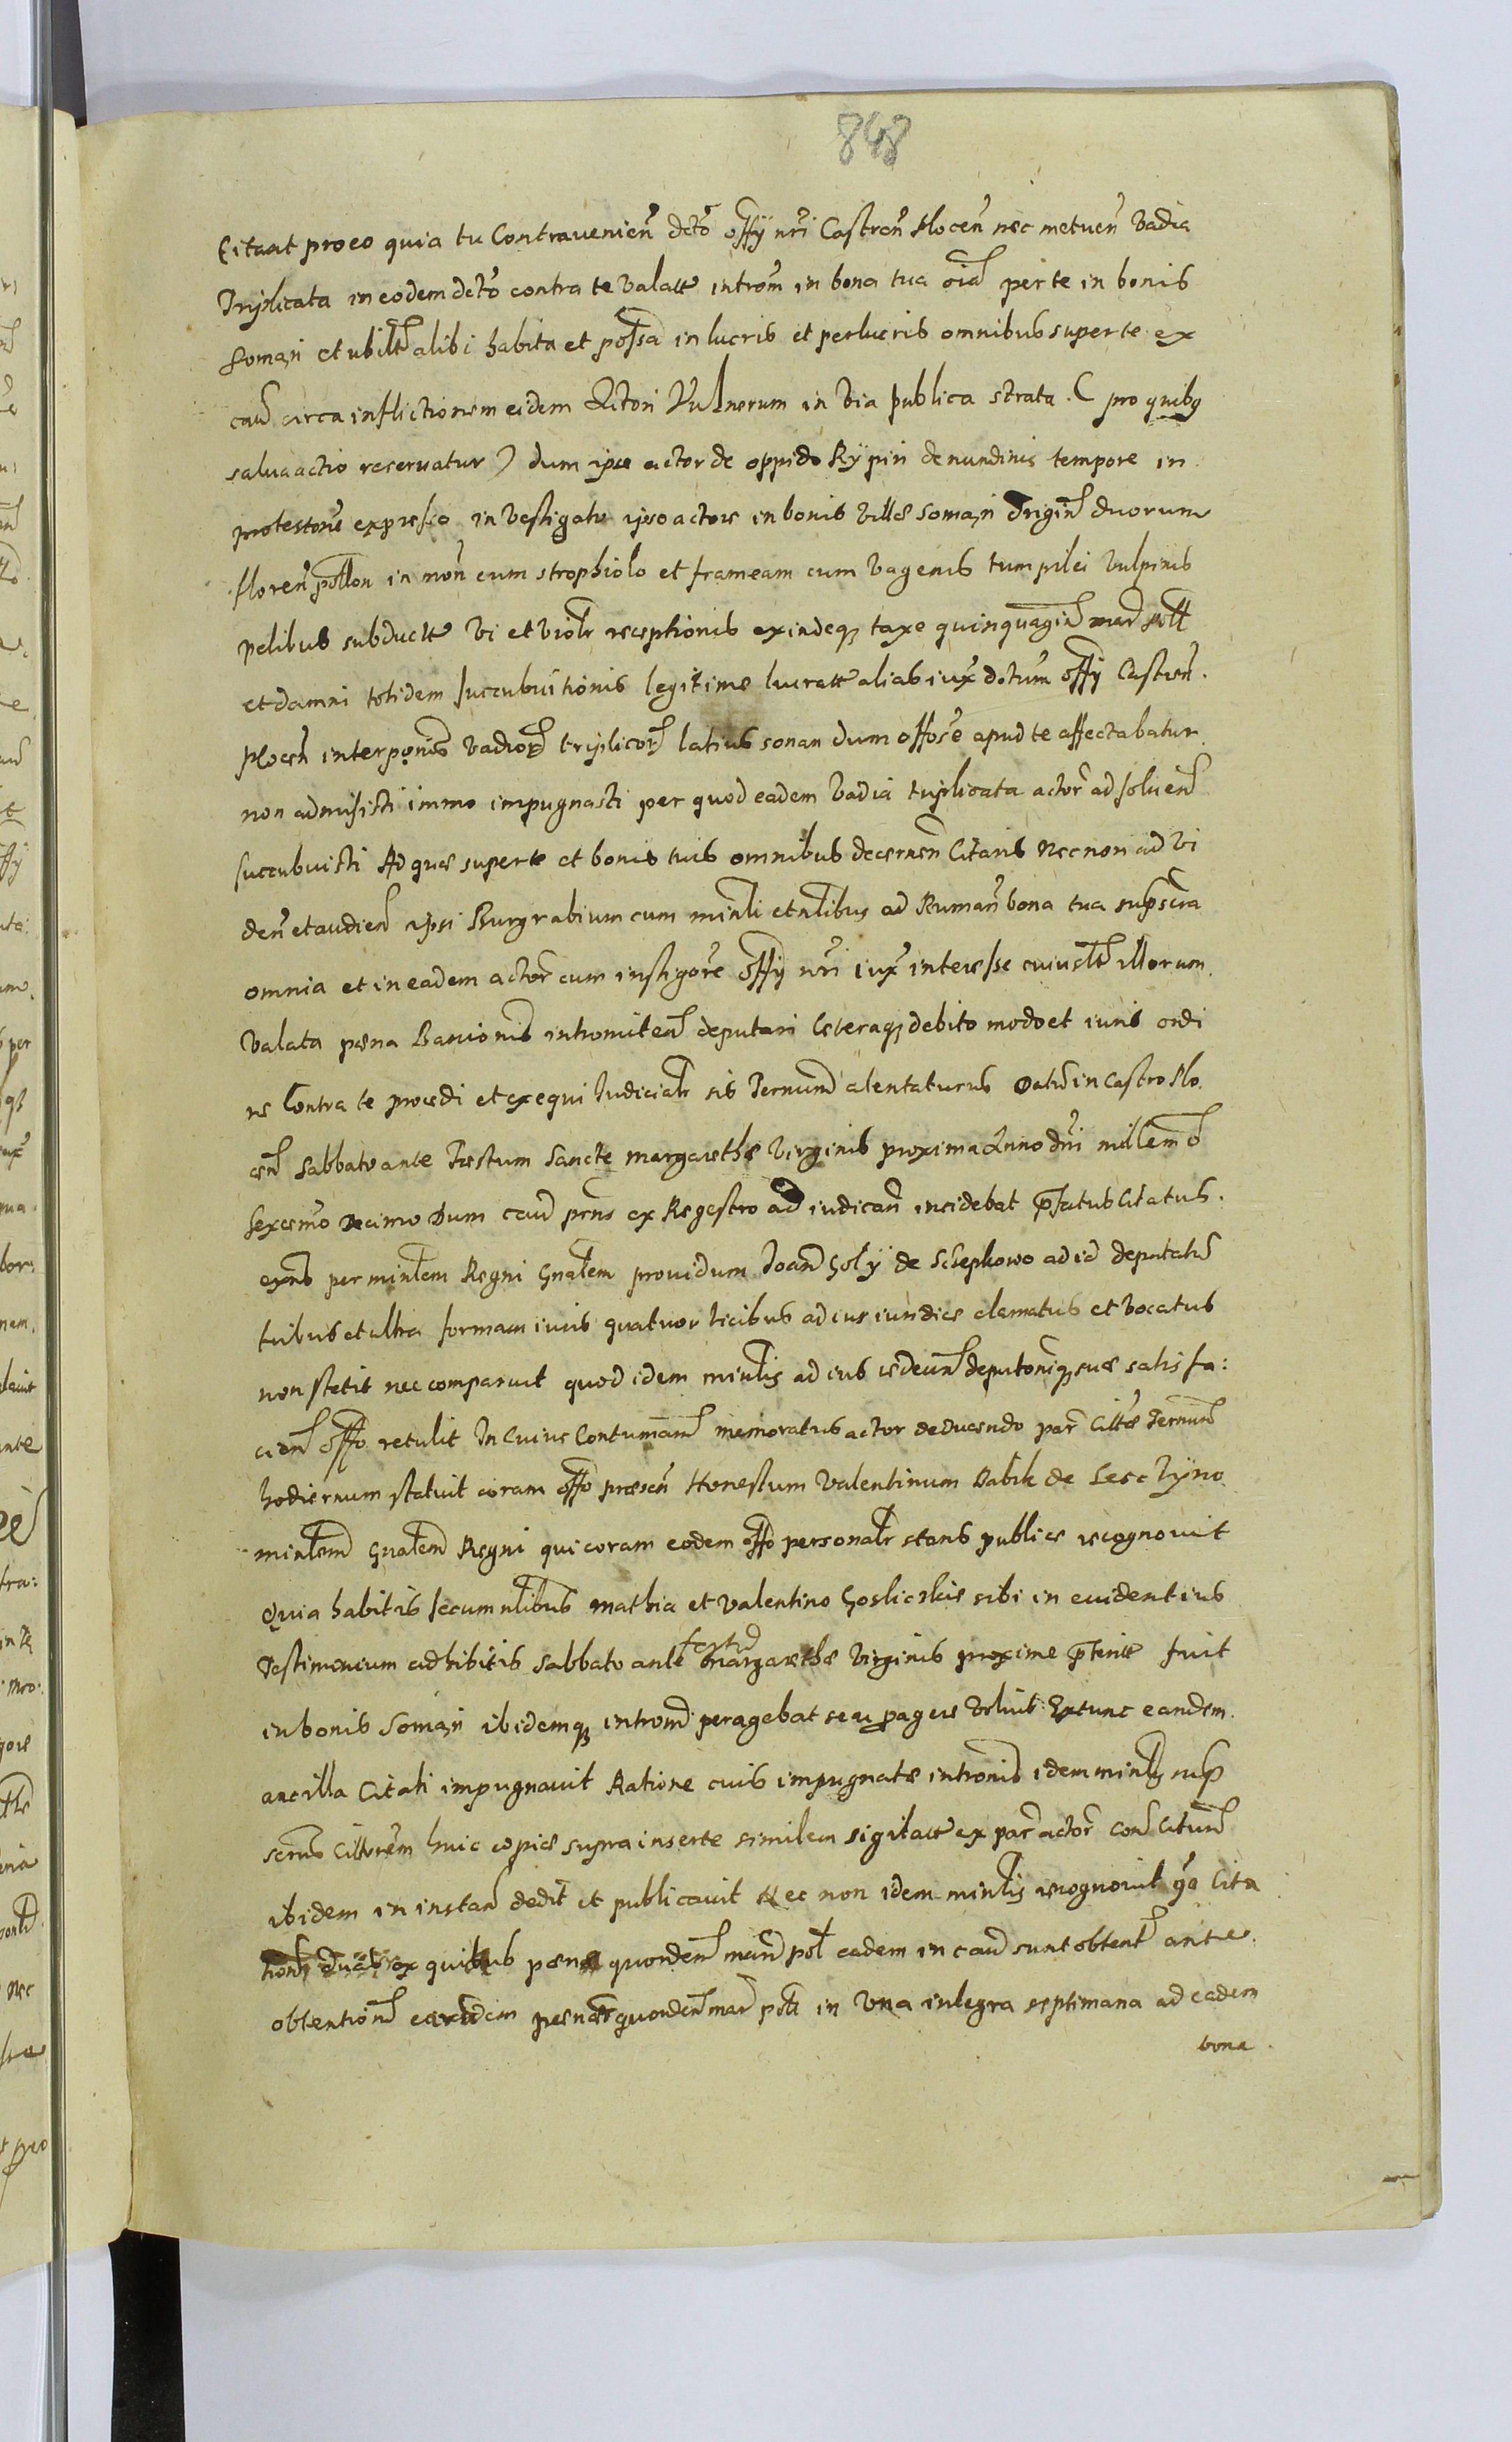 848
Citant pro eo quia tu Contravenien dcto offy nri Castren Plocen nec metuen Vadia
Triplicata in eodem dcto contra te valatt introm in bona tua oia per te in bonis
Somazi et ubilt alibi habita et possa in lucris et perlucris omnibus super te ex
cau circa inflictionem eidem Actori Vulnerum in via publica strata ( pro quibq
salua actio reseruatur ) dum ipse actor de oppido Rypin de nundinis tempore in
protestone expresso investigatu ipso actore in bonis Villæ Somazi trigint duorum
floren pollon in mon cum strophiolo et frameam cum Vagenis tum pilei Vulpinis
pelibus subductt Vi et violr receptionis exindeq taxe quinquagint mar poll
et damni totidem succubuitionis legitime lucratt alias iux dctum offy Castren.
Plocen interponis vadior triplicor latius sonan dum offose apud te affectabatur
non admisisti immo impugnasti per quod eadem Vadia triplicata actor ad soluen
succubuisti Ad quæ super te et bonis tuis omnibus decernen Citaris Nec non ad vi
den et audien ipsi Burgrabium cum minli et nlibus ad Ruman bona tua supscra
omnia et in eadem actor cum instigore offy nri iux interesse cuiuslt illorum
valata pæna Banionis intromiten deputari Cæteraq debito modo et iuris ordi
ne Contra te procedi et exequi Judicialr sis Ternum atentaturus Datu in Castro Plo
cen Sabbato ante Festum Sancte Margarethæ Virginis proxima Anno dni millemo
Sexcemo Decimo Dum cau prns ex Regestro ad iudican incidebat pfatus Citatus.
exns per minlem Regni Gnalem prouidum Joan Goly de Scsepkowo ad id deputatu
tribus et ultra formam iuris quatuor vicibus ad ius iuridice clamatus et vocatus
non stetit nec comparuit quod idem minlis ad ius redeun deputoniq suæ satis fa:
cien offo retulit In Cuius Contumam memoratus actor deducendo par Cittæ Ternum
hodiernum statuit coram offo præsen Honestum Valentinum Babik de Lesc zyno
minlem Gnalem Regni qui coram eodem offo personalr stans publice recognouit
Quia habitis secum nlibus Mathia et Valentino Goslicskie sibi in euidentius
Testimonium adhibitis Sabbato ante festu Margarethæ Virginis proxime pteritt fuit
in bonis Somazi ibidemq introm peragebat seu pagere voluit Extunc eandem
ancilla Citati impugnauit Ratione cuis impugnatæ intronis idem minlis sup
scrns Cittorem huic copiæ supra inserte similem sigilatt ex par actor con Citum
ibidem in instan dedit et publicauit Nec non idem minlis recognouit qo Cita
ex quibus pæna quorden mar pol eadem in cau sunt obtent ante
obtention earudem pænar quorden mar poll in Vna integra septimana ad eadem
bona